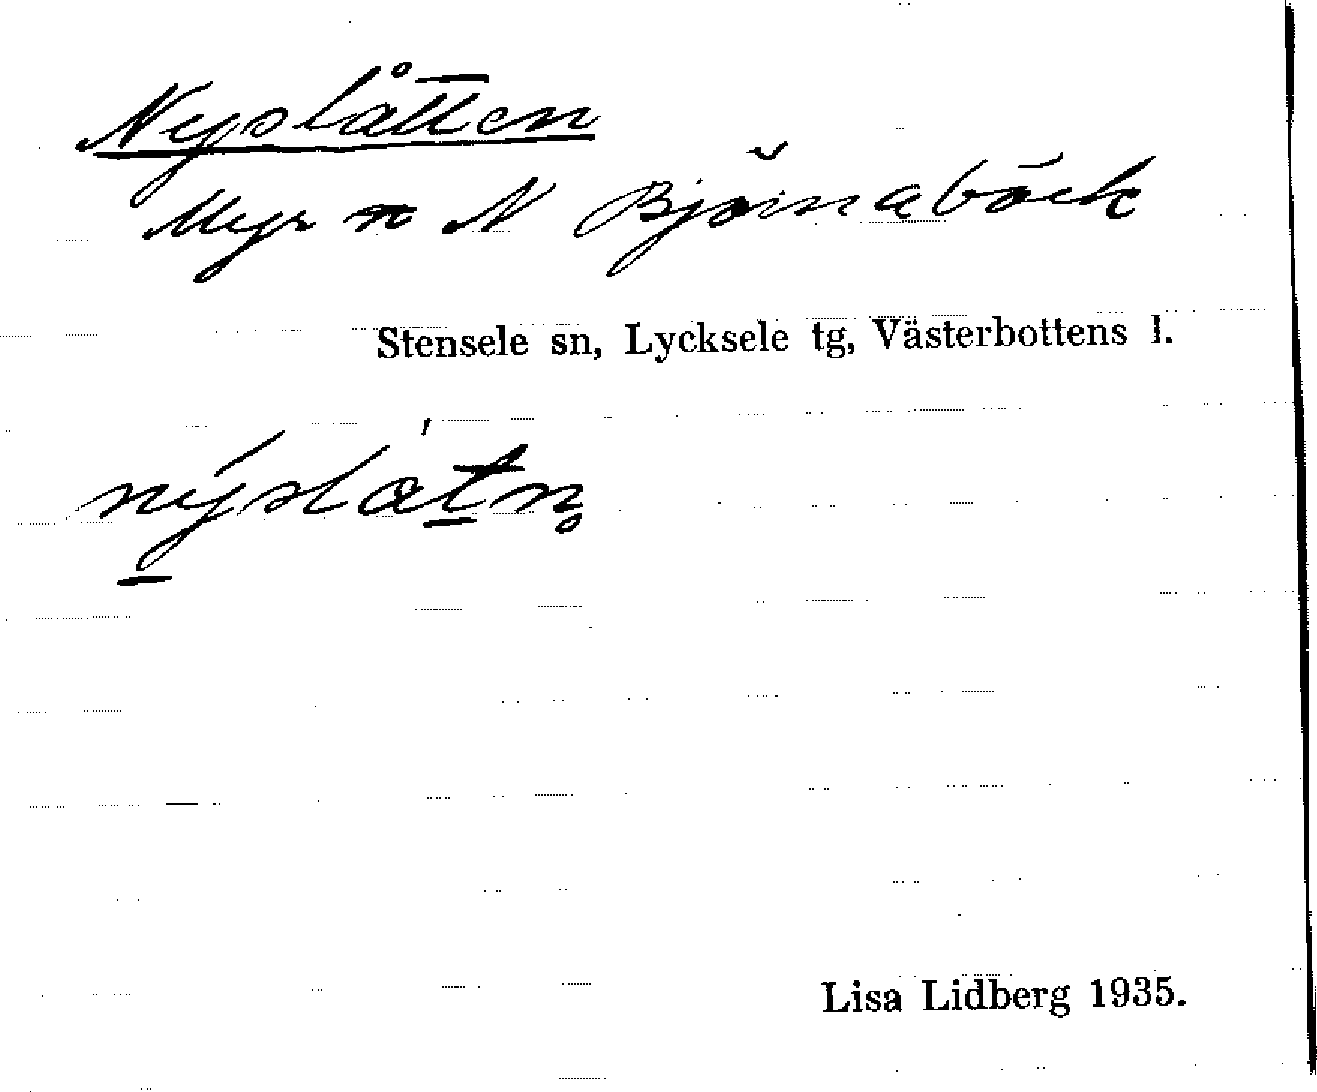 Nyslåtten
Myr n N Björnabäck
Stensele sn, Lycksele tg, Västerbottens l.
Lisa Lidberg 1935.